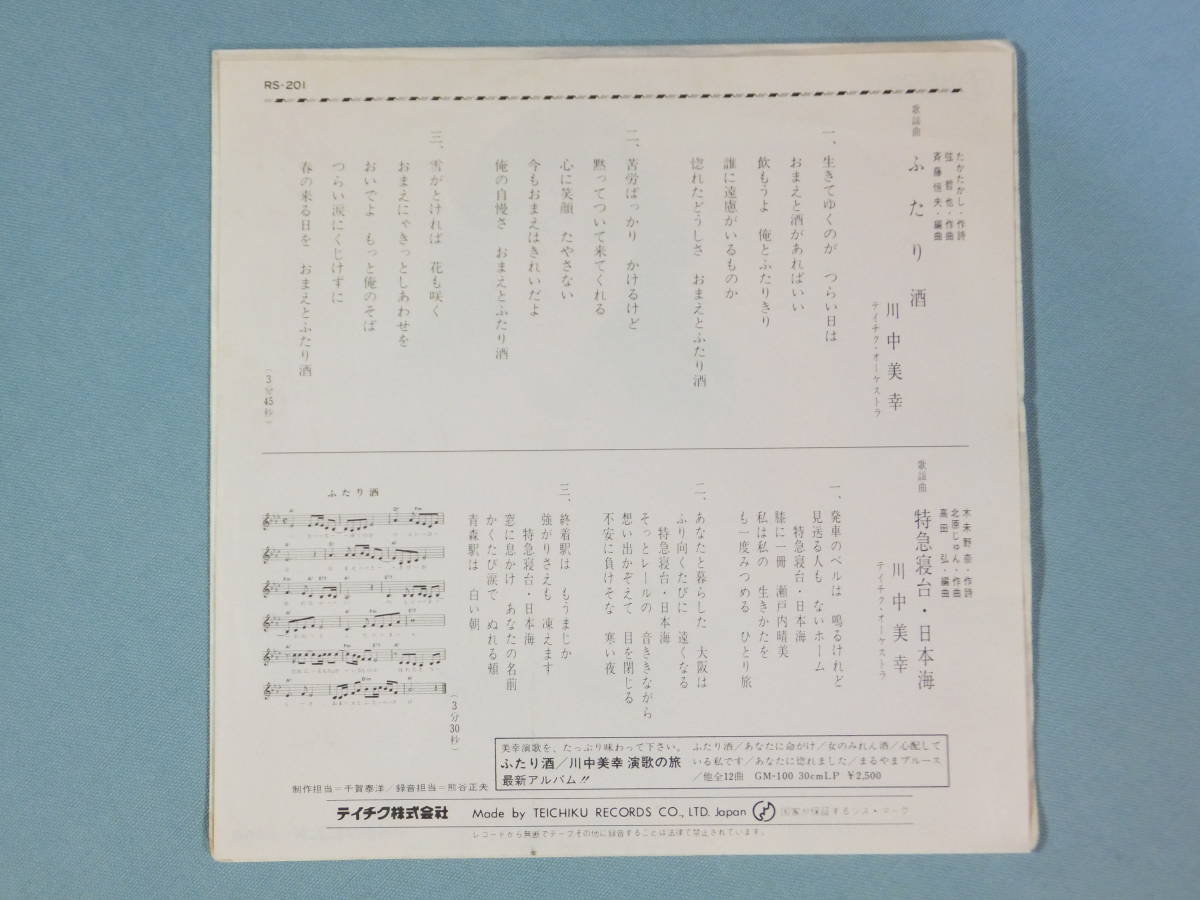 RS-201
歌謡曲
ふたり酒
たかたかし・作詩
弦哲也・作曲
斉藤恒夫・編曲
川中美幸
テイチク・オーケストラ
一、生きてゆくのが つらい日は
おまえと酒があればいい
飲もうよ 俺とふたりきり
誰に遠慮がいるものか
惚れたどうしさ おまえとふたり酒
二、苦労ばっかり かけるけど
黙ってついて来てくれる
心に笑顔 たやさない
今もおまえはきれいだよ
俺の自慢さ おまえとふたり酒
三、雪がとければ 花も咲く
おまえにゃきっとしあわせを
おいでよ もっと俺のそば
つらい涙にくじけずに
春の来る日を おまえとふたり酒
(3分45秒)
歌謡曲
特急寝台・日本海
木未野奈・作詩
北原じゅん・作曲
高田弘・編曲
川中美幸
テイチク・オーケストラ
一、発車のベルは 鳴るけれど
見送る人も ないホーム
特急寝台・日本海
膝に一冊 瀬戸内晴美
私は私の 生きかたを
も一度みつめる ひとり旅
二、あなたと暮らした 大阪は
ふり向くたびに 遠くなる
特急寝台・日本海
そっとレールの 音ききながら
想い出かぞえて 目を閉じる
不安に負けそな 寒い夜
三、終着駅は もうまじか
強がりさえも 凍えます
特急寝台・日本海
窓に息かけ あなたの名前
かくたび涙で ぬれる頬
青森駅は 白い朝
(3分30秒)
ふたり酒
美幸演歌を、たっぷり味わって下さい。
ふたり酒/川中美幸 演歌の旅
最新アルバム!!
ふたり酒/あなたに命がけ/女のみれん酒/心配して
いる私です/あなたに惚れました/まるやまブルース
/他全12曲 GM-100 30cmLP ¥2,500
制作担当=千賀泰洋/録音担当=熊谷正夫
テイチク株式会社 Made by TEICHIKU RECORDS CO., LTD. Japan 国家が保証するジス・マーク
レコードから無断でテープその他に録音することは法律で禁止されています。